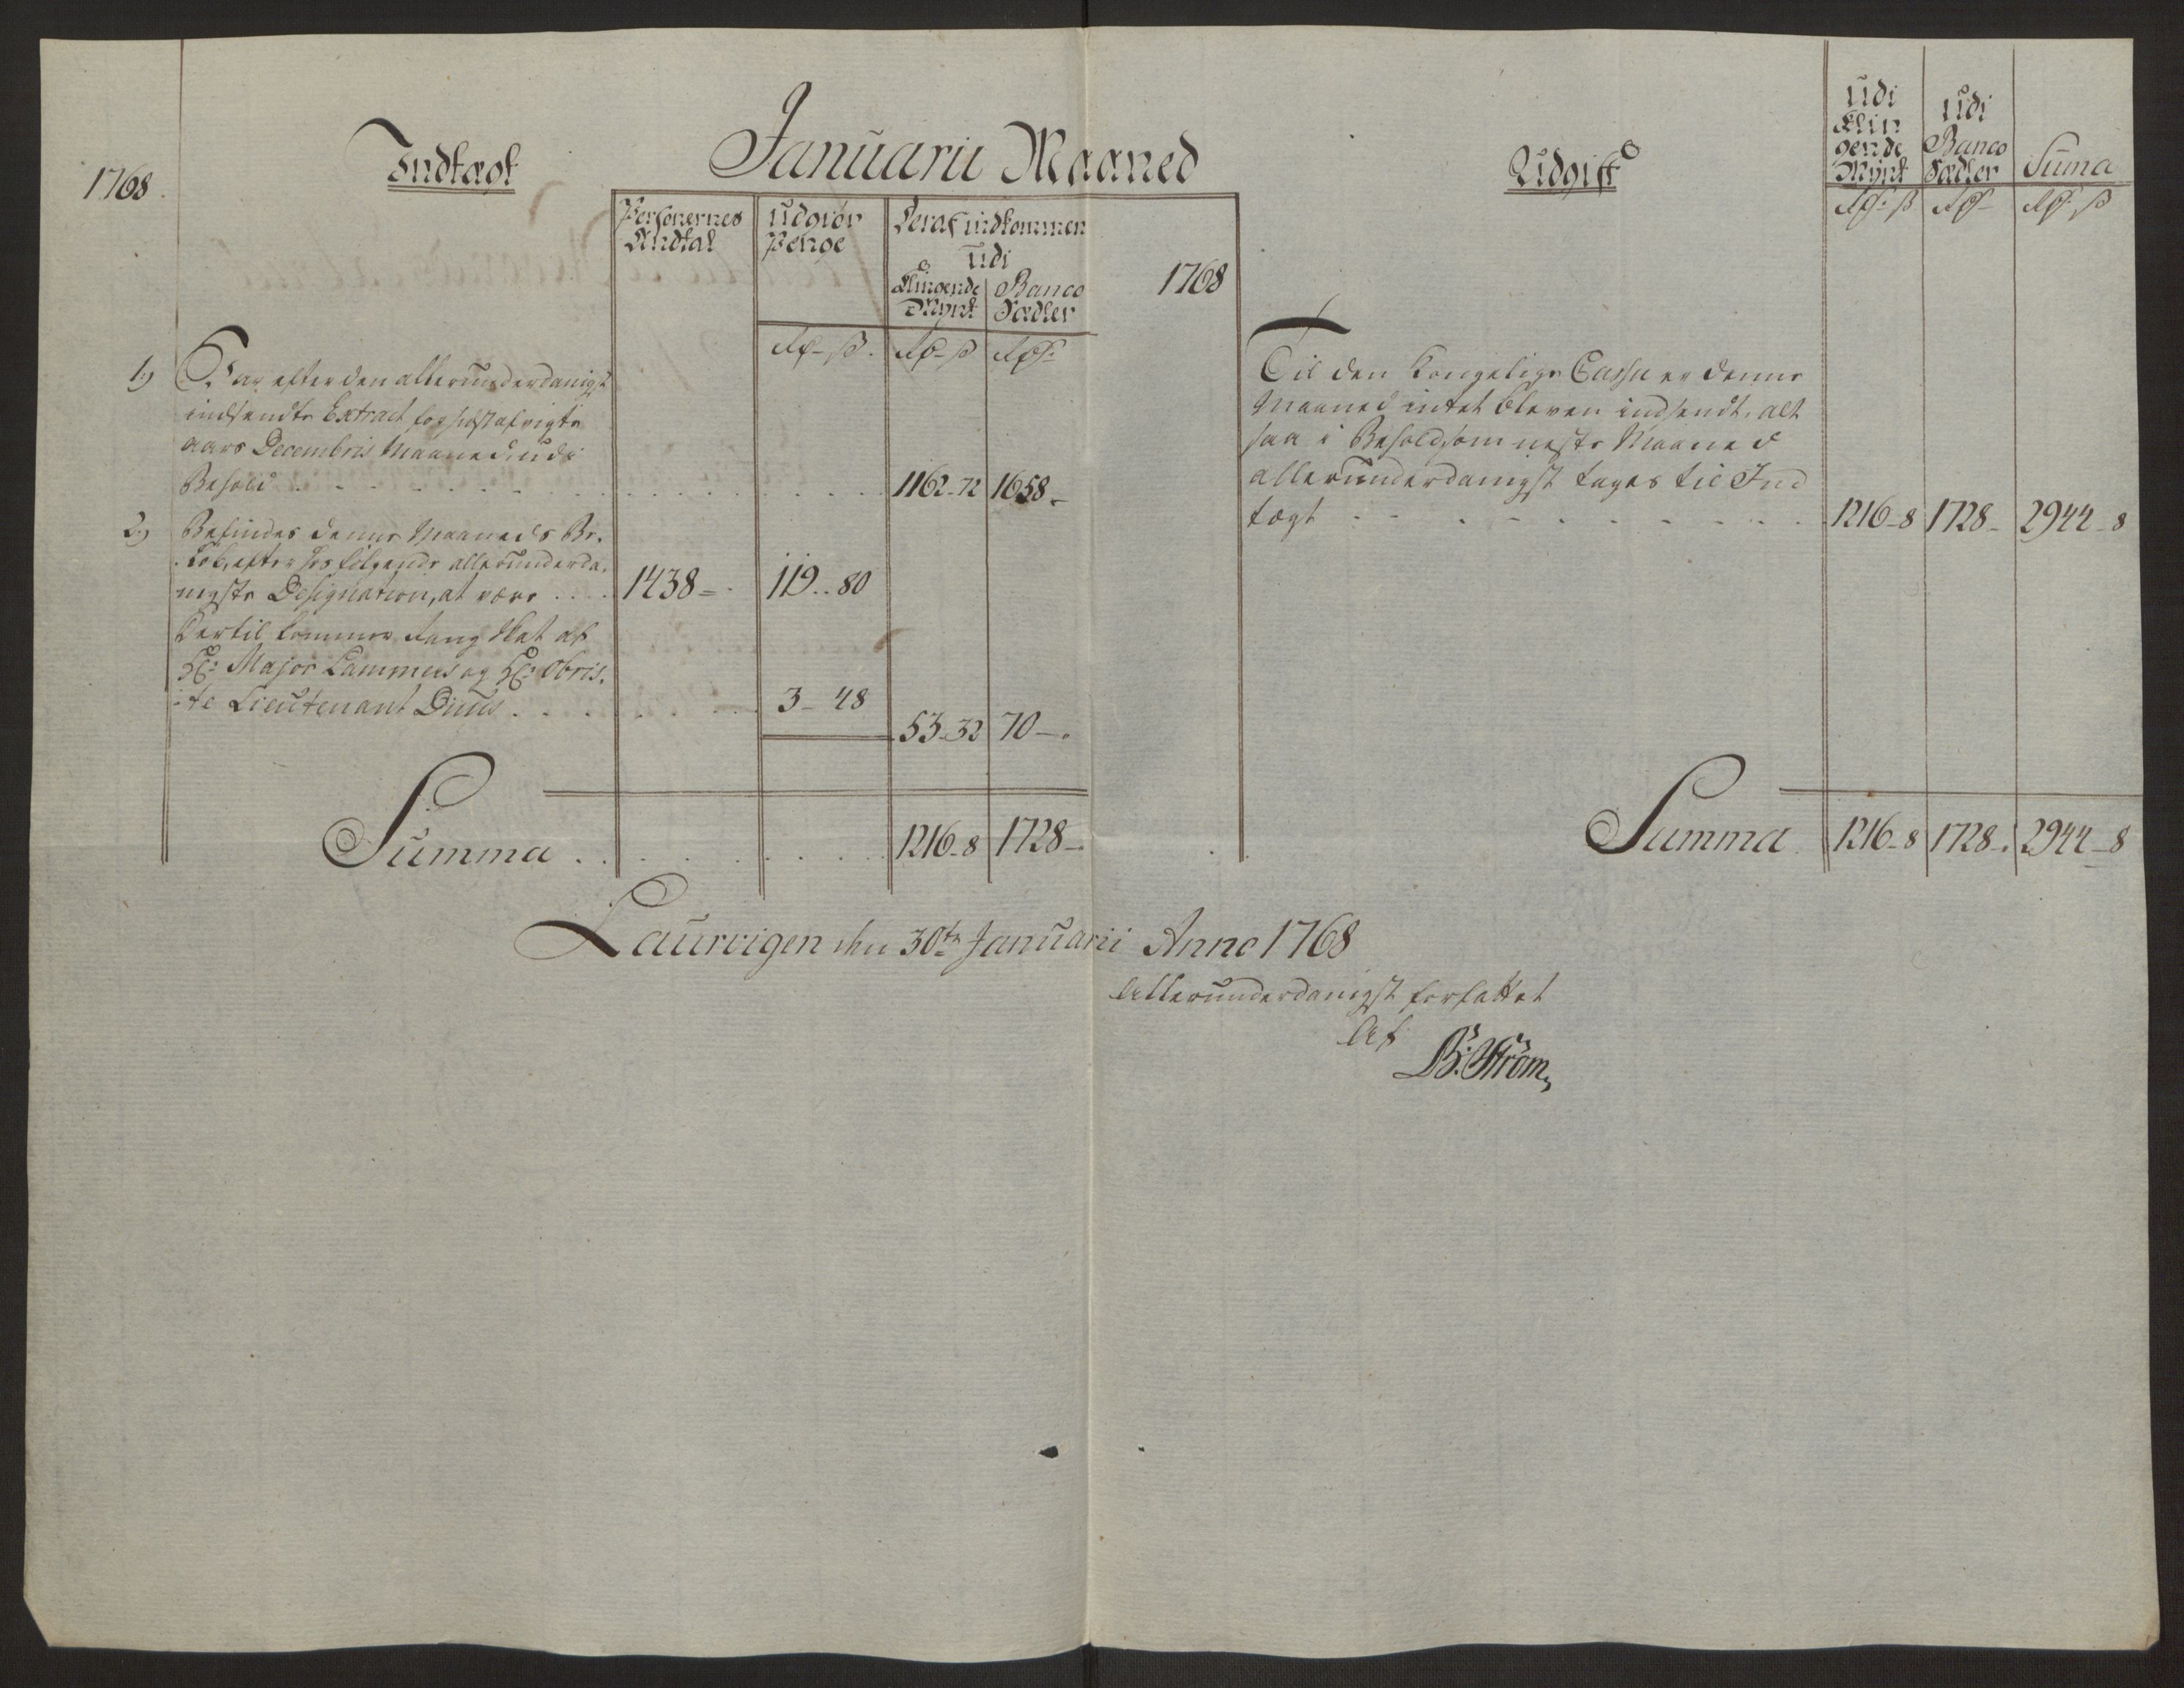 Januarii Maaned
1768.
Indtægt
Personernes Andtal
udgiør Penge
Deraf indkommen udi
Klingende Mynt
Banco Sædler
Rd - ß.
Rd - ß
Rd:
1.) Var efter den allerunderdanigst
indsendte Extract for sidst afvigte
aars Decembris Maaned udi
Behold . . . 1162-72 1658-
2.) Befindes denne Maaneds Be-
løb, efter hos følgende allerunderda-
nigste Designation, at være . . . . 1438= 119..80
Dertil kommer Rang Skat af
Hr: Major Lammers og Hr: Obris-
te Lieutenant Duus . . . 3-48
53-32 70-.
Summa . . . 1216-8 1728-.
1768
Udgift
udi Klin gende Mynt
udi Banco Sædler
Suma
Rd: ß
Rd-
Rd: ß
Til den Kongelige Cassa er denne
Maaned intet bleven indsendt, alt
saa i Behold, som neste Maaned
allerunderdanigst tages til Ind
tægt . . . 1216-8 1728- 2944-8
Summa 1216-8 1728-. 2944-8
Laurvigen den 30te Januarii Anno 1768
Allerunderdanigst forfattet
Af
B: Strøm